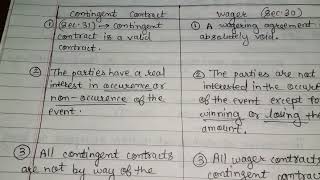 Contingent Contract
① (Sec.31) → contingent
contract is a valid
contract.
② The parties have a real
interest in occurence or
non-occurence of the
event.
③ All contingent contracts
are not by way of the
Wager (Sec.30)
① A wagering agreement
absolutely void.
② The parties are not
interested in the
of the event except for
winning or losing the
amount.
③ All wager contracts
contingent contract